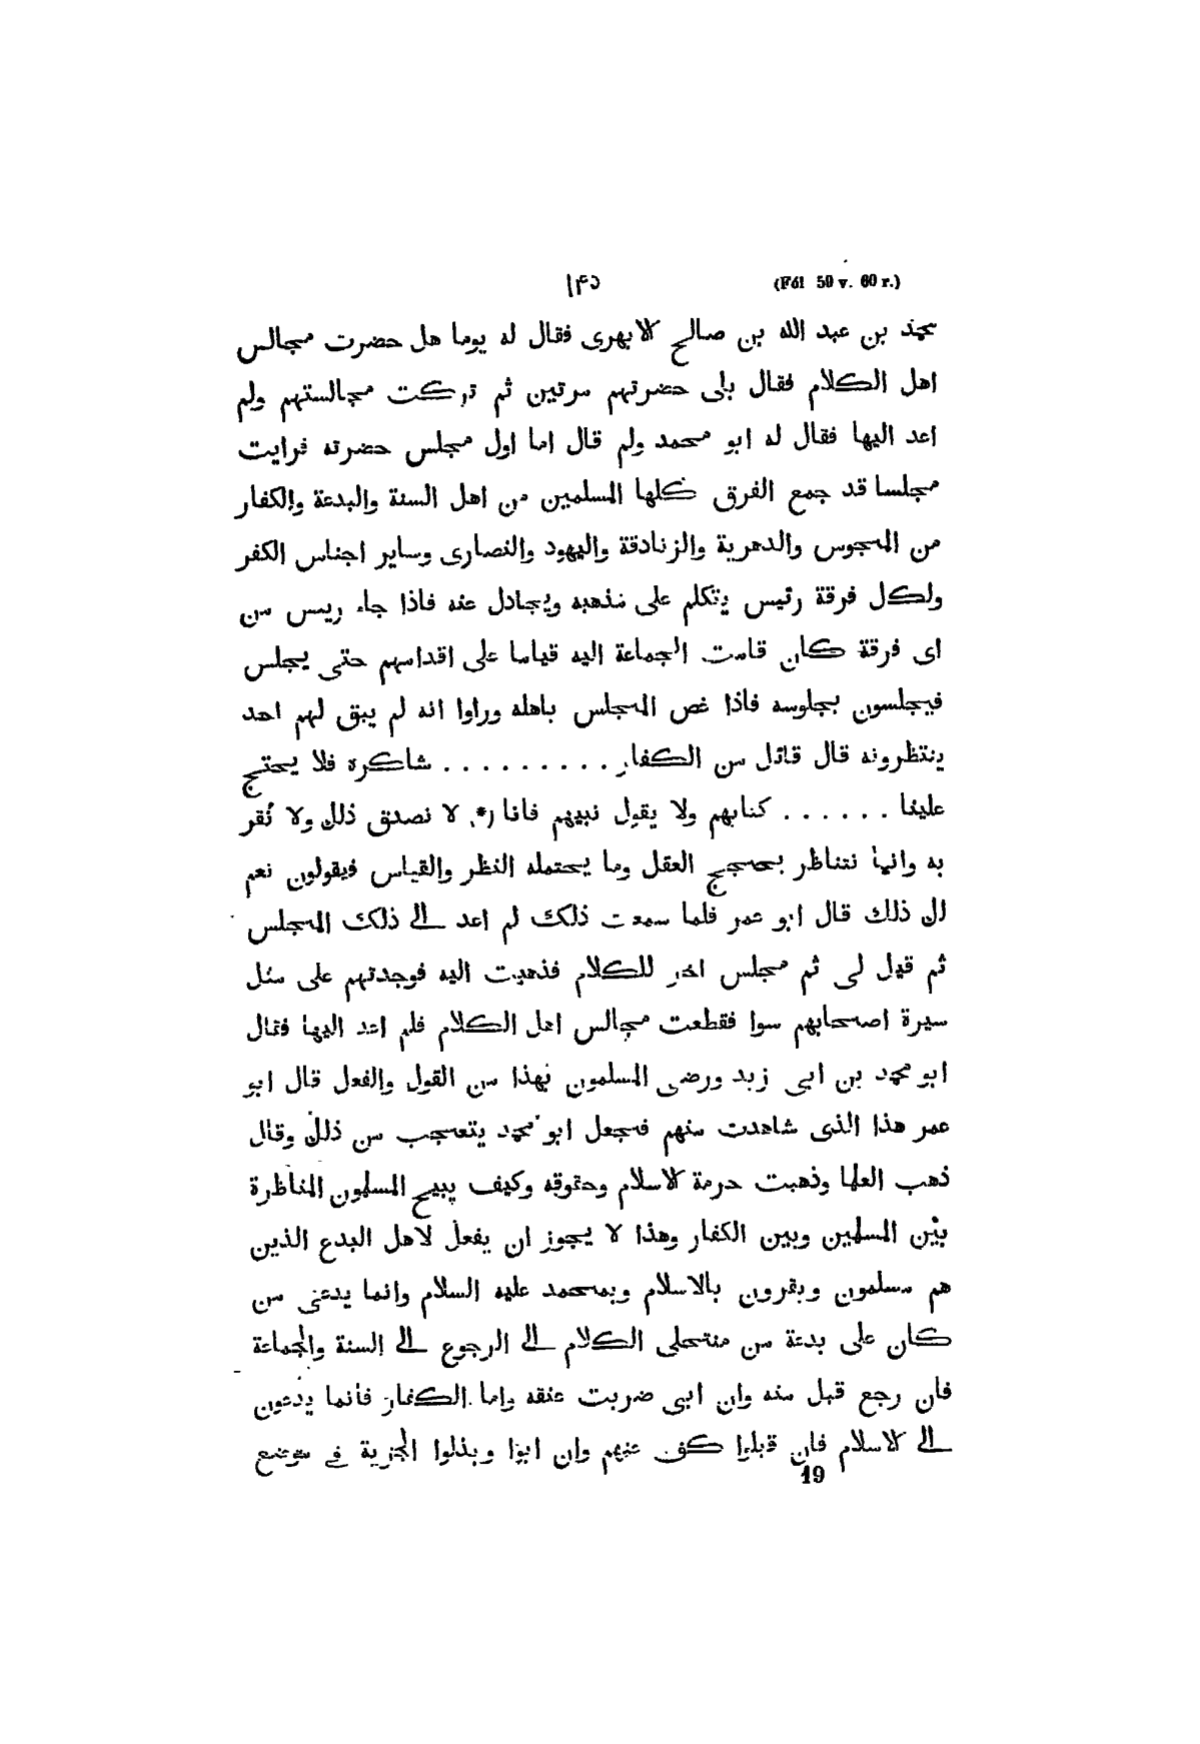 (Fól 59 v. 60 r.) ١٤٥
محمد بن عبد الله بن صالح الابهرى فقال له يوما هل حضرت مجالس
اهل الكلام فقال بلى حضرتهم مرتين ثم تركت مجالستهم ولم
اعد اليها فقال له ابو محمد ولم قال اما اول مجلس حضرته فرايت
مجلسا قد جمع الفرق كلها المسلمين من اهل السنة والبدعة والكفار
من المجوس والدهرية والزنادقة واليهود والنصارى وساير اجناس الكفر
ولكل فرقة رئيس يتكلم على مذهبه ويجادل عنه فاذا جاء ريس من
اى فرقة كان قامت الجماعة اليه قياما على اقدامهم حتى يجلس
فيجلسون بجلوسه فاذا غص المجلس باهله وراوا انه لم يبق لهم احد
ينتظرونه قال قائل من الكفار . . . . . . . . . شاكره فلا يحتج
علينا . . . . . . كتابهم ولا يقول نبيهم فانا لا نصدق ذلك ولا نقر
به وانما نتناظر بحجج العقل وما يحتمله النظر والقياس فيقولون نعم
لك ذلك قال ابو عمر فلما سمعت ذلك لم اعد الى ذلك المجلس
ثم قيل لى ثم مجلس اخر للكلام فذهبت اليه فوجدتهم على مثل
سيرة اصحابهم سوا فقطعت مجالس اهل الكلام فلم اعد اليها فقال
ابو محمد بن ابى زيد ورضى المسلمون بهذا من القول والفعل قال ابو
عمر هذا الذى شاهدت منهم فجعل ابو محمد يتعجب من ذلك وقال
ذهب العلما وذهبت حرمة الاسلام وحقوقه وكيف يبيح المسلمون المناظرة
بين المسلمين وبين الكفار وهذا لا يجوز ان يفعل لاهل البدع الذين
هم مسلمون ويقرون بالاسلام وبمحمد عليه السلام وانما يدعى من
كان على بدعة من منتحلى الكلام الى الرجوع الى السنة والجماعة
فان رجع قبل منه وان ابى ضربت عنقه واما الكفار فانما يدعون
الى الاسلام فان قبلوا كف عنهم وان ابوا وبذلوا الجزية فى موضع
19